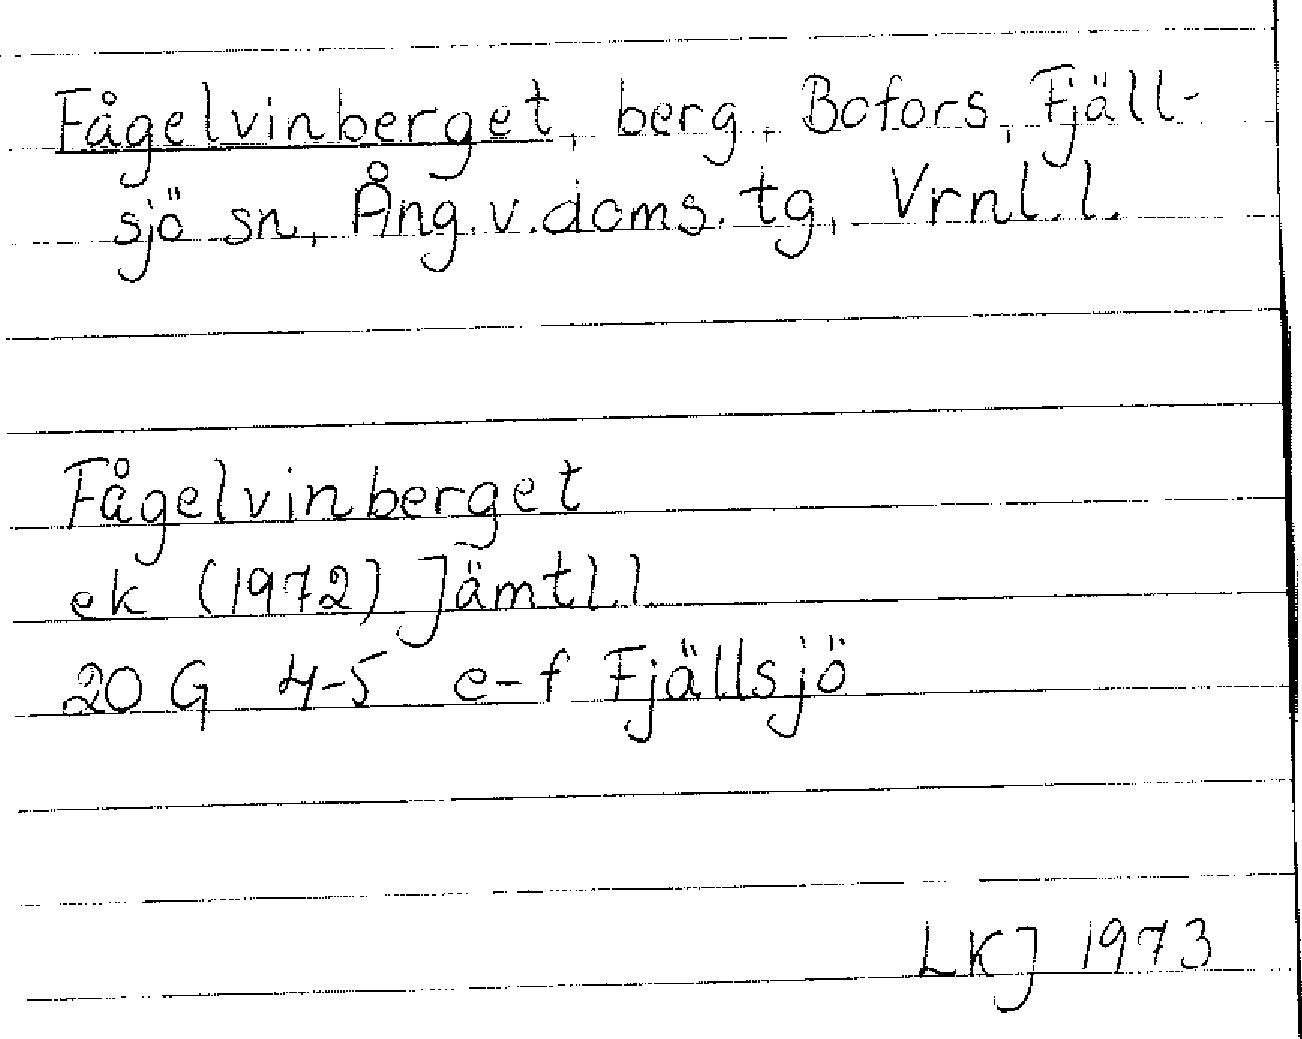 Fågelvinberget, berg, Bofors, Fjäll-
sjö sn, Ång.v.doms.tg, Vrnl.l.
Fågelvinberget
ek (1972) Jämtl.l
20 G 4-5 e-f Fjällsjö
LKJ 1973